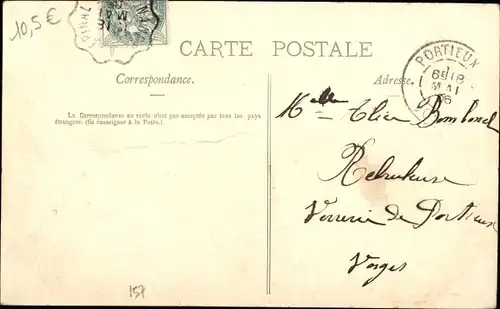 10,5€
CARTE POSTALE
Correspondance.
Adresse.
La Correspondance au recto n'est pas acceptée par tous les pays
étrangers. (Se renseigner à la Poste.)
PORTIEUX
6E 18
MAI
06
Melle
Retoucheuse
Verrerie de Portieux
Vosges
157